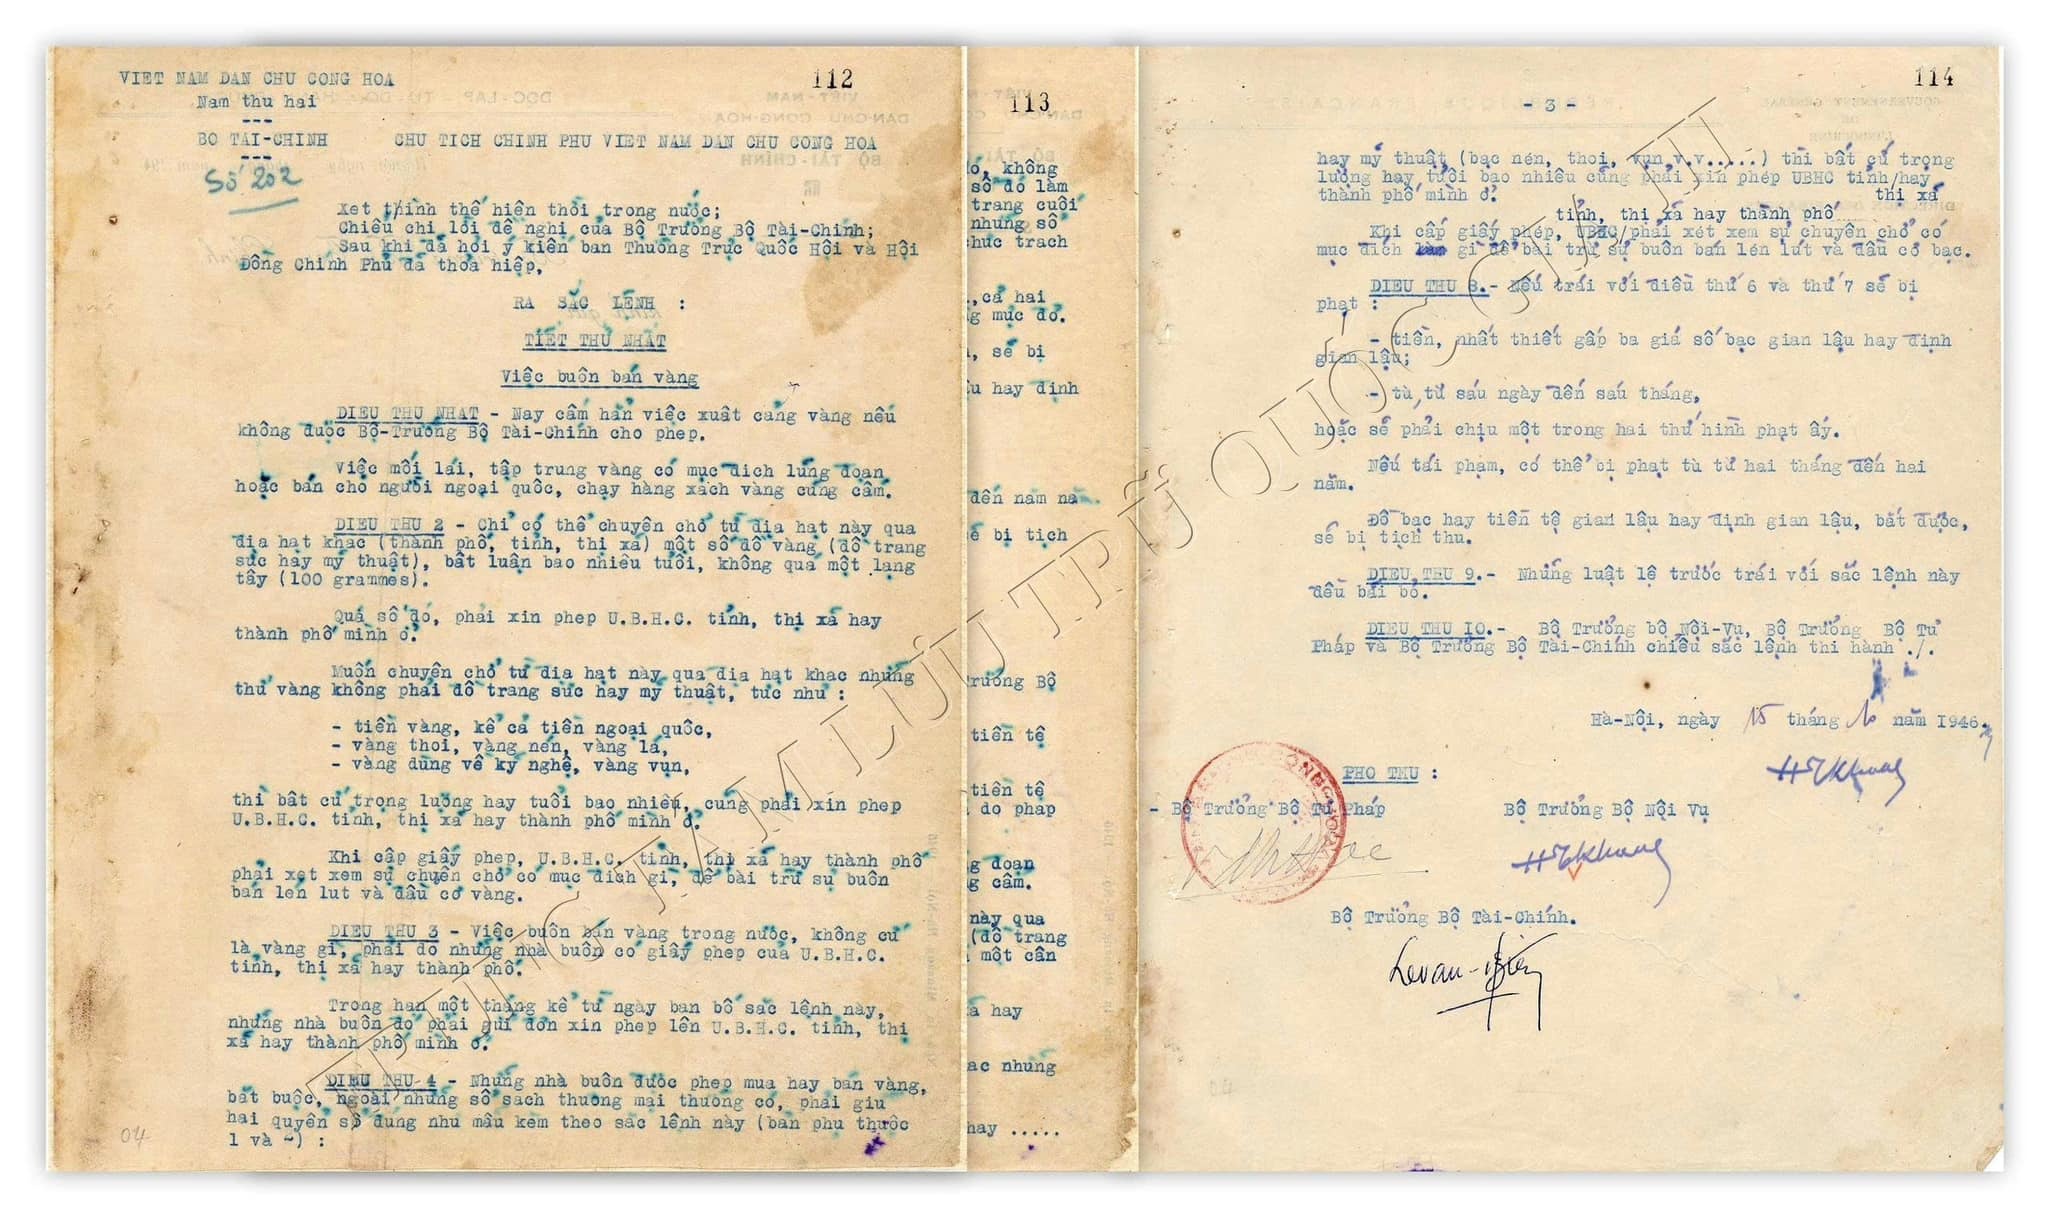 VIET NAM DAN CHU CONG HOA
112
Nam thu hai
BO TAI-CHINH
CHU TICH CHINH PHU VIET NAM DAN CHU CONG HOA
Số 202
Xet thình thế hiện thời trong nước;
Chiếu chi lời đề nghị của Bộ Trưởng Bộ Tài-Chính;
Sau khi đã hỏi ý kiến ban Thường Trực Quốc Hội và Hội
Đồng Chính Phủ đã thỏa hiệp,
RA SẮC LỆNH :
TIẾT THỨ NHẤT
Việc buôn bán vàng
DIEU THU NHAT - Nay cấm hẳn việc xuất cảng vàng nếu
không được Bộ-Trưởng Bộ Tài-Chính cho phep.
Việc mối lái, tập trung vàng có mục đich lũng đoạn
hoặc bán cho người ngoại quốc, chạy hàng xách vàng cũng cấm.
DIEU THU 2 - Chỉ có thể chuyên chở từ địa hạt này qua
địa hạt khác (thành phố, tỉnh, thị xã) một số đồ vàng (đồ trang
sức hay mỹ thuật), bất luận bao nhiêu tuổi, không quá một lạng
tây (100 grammes).
Quá số đó, phải xin phep U.B.H.C. tỉnh, thị xã hay
thành phố mình ở.
Muốn chuyên chở từ địa hạt này qua địa hạt khac những
thứ vàng không phải đồ trang sức hay mỹ thuật, tức như :
- tiền vàng, kể cả tiền ngoại quốc,
- vàng thoi, vàng nén, vàng lá,
- vàng dùng về kỹ nghệ, vàng vụn,
thì bất cứ trọng lượng hay tuổi bao nhiêu, cũng phải xin phep
U.B.H.C. tỉnh, thị xã hay thành phố mình ở.
Khi cấp giấy phep, U.B.H.C. tỉnh, thị xã hay thành phố
phải xet xem sự chuyên chở có mục đich gì, để bài trừ sự buôn
bán lén lut và đầu cơ vàng.
DIEU THU 3 - Việc buôn bán vàng trong nước, không cứ
là vàng gì, phải do những nhà buôn có giấy phep của U.B.H.C.
tỉnh, thị xã hay thành phố.
Trong hạn một tháng kể từ ngày ban bố săc lệnh này,
những nhà buôn đó phải gửi đơn xin phep lên U.B.H.C. tỉnh, thị
xã hay thành phố mình ở.
DIEU THU 4 - Những nhà buôn được phep mua hay bán vàng,
bắt buộc, ngoài những sổ sach thương mại thường có, phải giữ
hai quyển sổ đúng như mẫu kèm theo săc lệnh này (bản phụ thuộc
1 và ) :
04
113
đó, không
số đó làm
trang cuối
những số
chức trach
cả hai
mục đó.
sẽ bị
hay định
đến năm
bị tịch
Trưởng Bộ
tiền tệ
tiền tệ
do pháp
đoạn
cấm.
này qua
(đồ trang
một cân
hay
những
hay .....
114
- 3 -
hay mỹ thuật (bạc nén, thoi, vụn v.v.....) thì bất cứ trọng
lượng hay tuổi bao nhiêu cũng phải xin phép UBHC tỉnh/hay
thị xã
thành phố mình ở.
tỉnh, thị xã hay thành phố
Khi cấp giấy phép, UBHC/phải xét xem sự chuyên chở có
mục đích gì để bài trừ sự buôn bán lén lút và đầu cơ bạc.
DIEU THU 8.- Nếu trái với điều thứ 6 và thứ 7 sẽ bị
phạt :
- tiền, nhất thiết gấp ba giá số bạc gian lậu hay định
gian lậu;
- tù, từ sáu ngày đến sáu tháng,
hoặc sẽ phải chịu một trong hai thứ hình phạt ấy.
Nếu tái phạm, có thể bị phạt tù từ hai tháng đến hai
năm.
Đồ bạc hay tiền tệ gian lậu hay định gian lậu, bắt được,
sẽ bị tịch thu.
DIEU THU 9.- Những luật lệ trước trái với sắc lệnh này
đều bãi bỏ.
DIEU THU 10.- Bộ Trưởng bộ Nội-Vụ, Bộ Trưởng Bộ Tư
Pháp và Bộ Trưởng Bộ Tài-Chính chiếu sắc lệnh thi hành ./.
Hà-Nội, ngày 15 tháng 10 năm 1946
HTKhang
PHO THU :
- Bộ Trưởng Bộ Tư Pháp
Bộ Trưởng Bộ Nội Vụ
HTKhang
Bộ Trưởng Bộ Tài-Chính.
Levan-Hiến
TRUNG TÂM LƯU TRỮ QUỐC GIA III